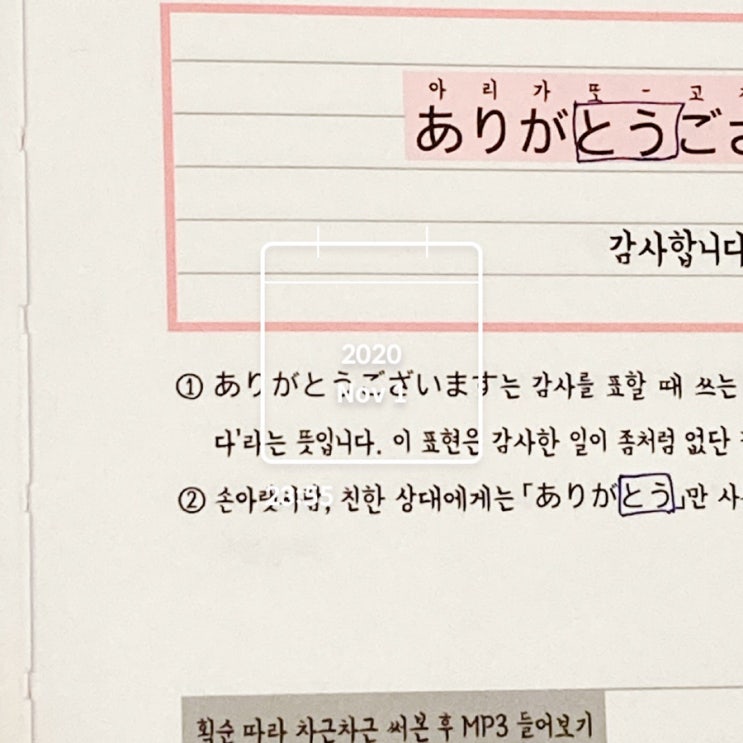 아 리 가 또 - 고
ありがとうご
감사합니다
2020
Nov 1
① ありがとうございます는 감사를 표할 때 쓰는
다'라는 뜻입니다. 이 표현은 감사한 일이 좀처럼 없단
② 친한 상대에게는 「ありがとう」만
획순 따라 차근차근 써본 후 MP3 들어보기